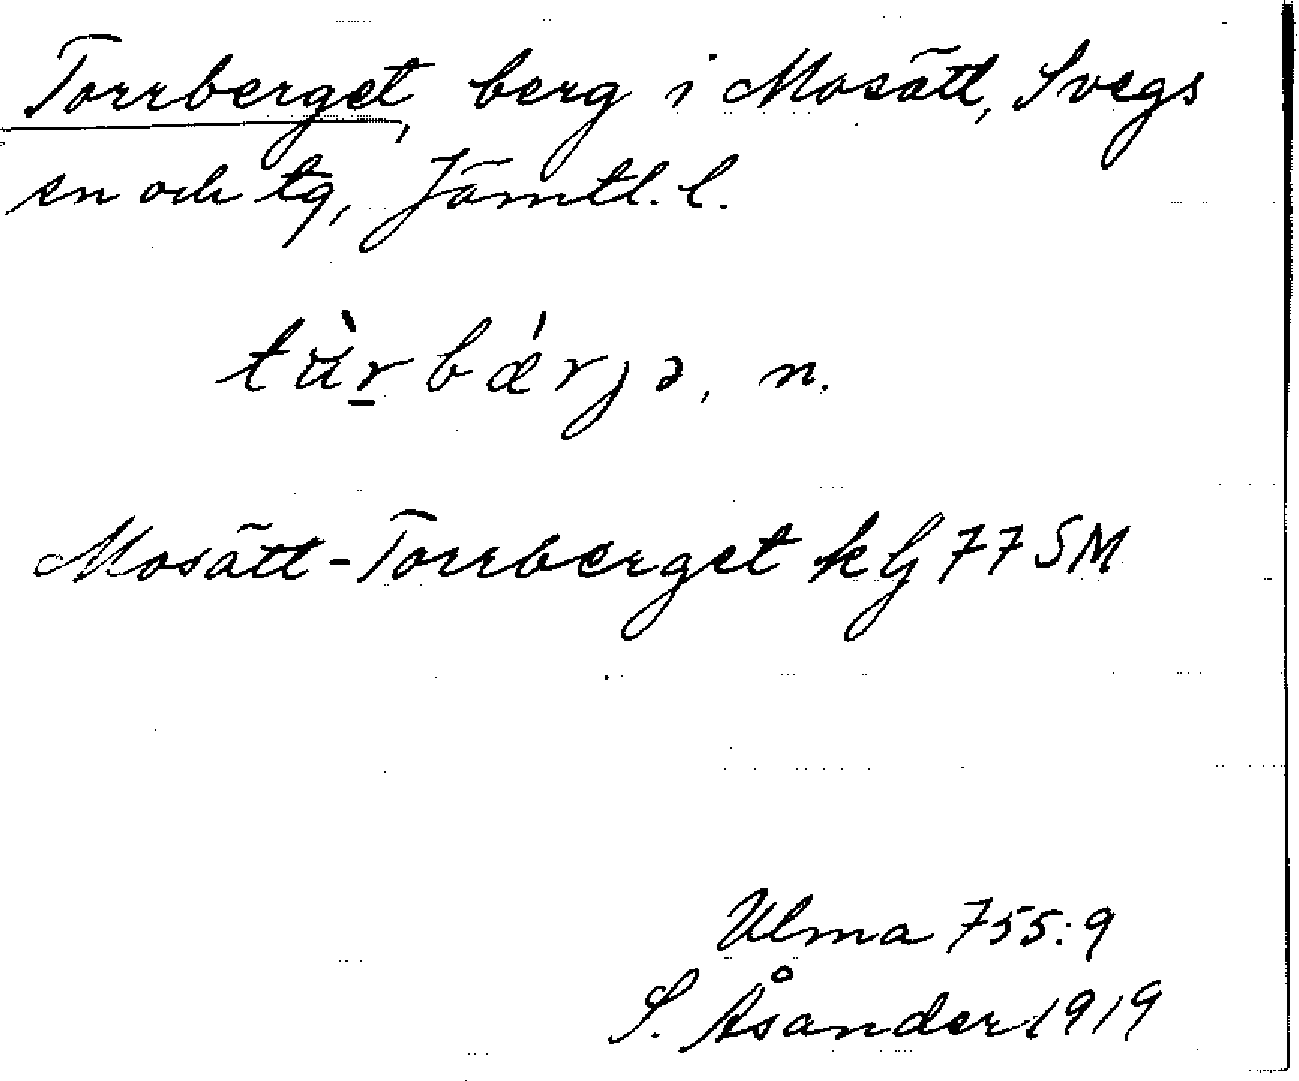 Torrberget, berg i Mosätt, Svegs
sn och tg, Jämtl. l.
tùrbǽrjə, n.
Mosätt-Torrberget k G 77 SM
Ulma 755:9
S. Åsander 1919